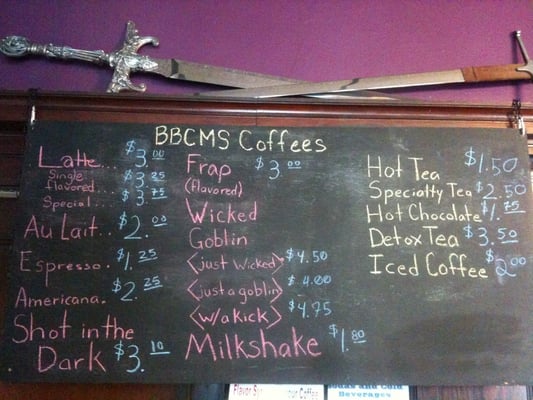 BBCMS Coffees
Latte... $3.00
Single flavored... $3.25
Special... $3.75
Au Lait.. $2.00
Espresso. $1.25
Americana. $2.25
Shot in the
Dark $3.10
Frap $3.00
(flavored)
Wicked
Goblin
<just Wicked> $4.50
<just a goblin> $4.00
<w/a kick> $4.75
Milkshake $1.80
Hot Tea $1.50
Specialty Tea $2.50
Hot Chocolate $1.75
Detox Tea $3.50
Iced Coffee $2.00
Flavor
Coffee
and Cold
Beverages